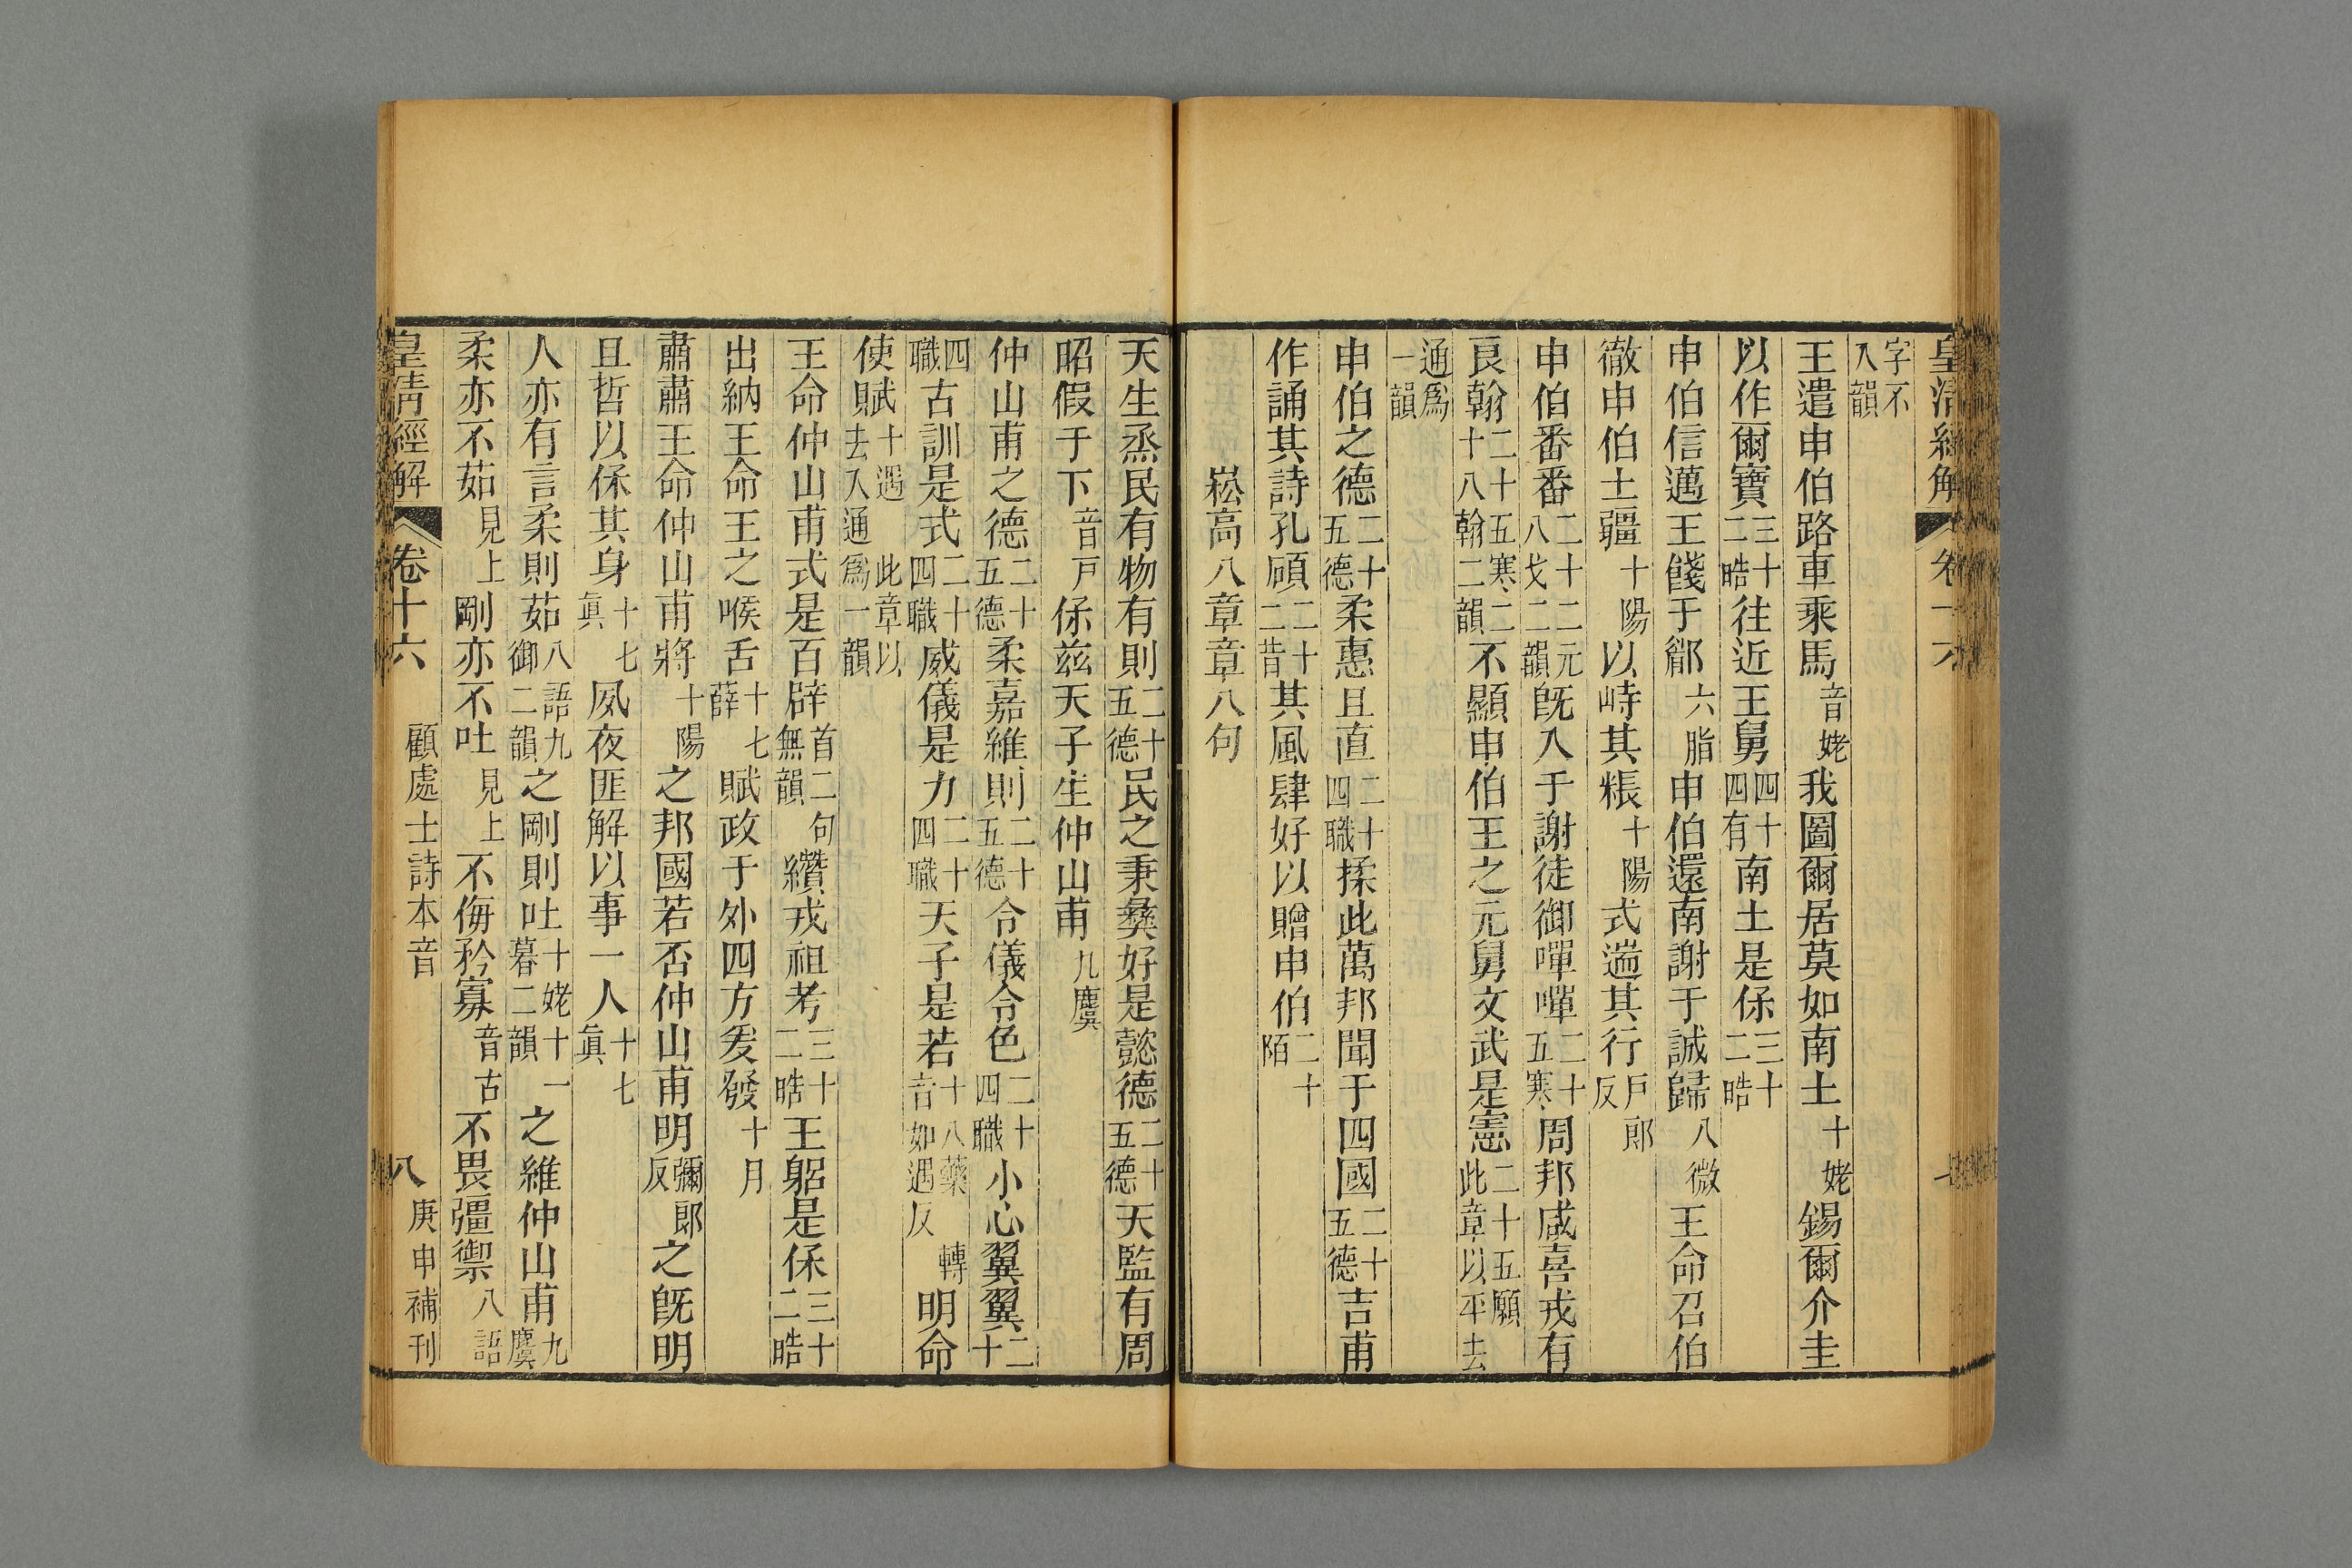 皇清經解 卷十六
字不入韻
王遣申伯路車乘馬音姥我圖爾居莫如南土十姥錫爾介圭
以作爾寶三十二晧往近王舅四十四有南土是保三十二晧
申伯信邁王餞于郿六脂申伯還南謝于誠歸八微王命召伯
徹申伯土疆十陽以峙其粻十陽式遄其行戶郎反
申伯番番二十二元八戈二韻旣入于謝徒御嘽嘽二十五寒周邦咸喜戎有
良翰二十五寒二十八翰二韻不顯申伯王之元舅文武是憲二十五願此章以平去
通爲一韻
申伯之德二十五德柔惠且直二十四職揉此萬邦聞于四國二十五德吉甫
作誦其詩孔碩二十二昔其風肆好以贈申伯二十陌
崧高八章章八句
天生烝民有物有則二十五德民之秉彝好是懿德二十五德天監有周
昭假于下音戶保茲天子生仲山甫九麌
仲山甫之德二十五德柔嘉維則二十五德令儀令色二十四職小心翼翼二十
四職古訓是式二十四職威儀是力二十四職天子是若十八藥轉音如遇反明命
使賦十遇去入通爲一韻此章以
王命仲山甫式是百辟首二句無韻纘戎祖考三十二晧王躬是保三十二晧
出納王命王之喉舌十七薛賦政于外四方爰發十月
肅肅王命仲山甫將十陽之邦國若否仲山甫明彌郎反之旣明
且哲以保其身十七眞夙夜匪解以事一人十七眞
人亦有言柔則茹八語九御二韻之剛則吐十姥十一暮二韻之維仲山甫九麌
柔亦不茹見上剛亦不吐見上不侮矜寡音古不畏彊禦八語
皇清經解 卷十六 顧處士詩本音 八 庚申補刊